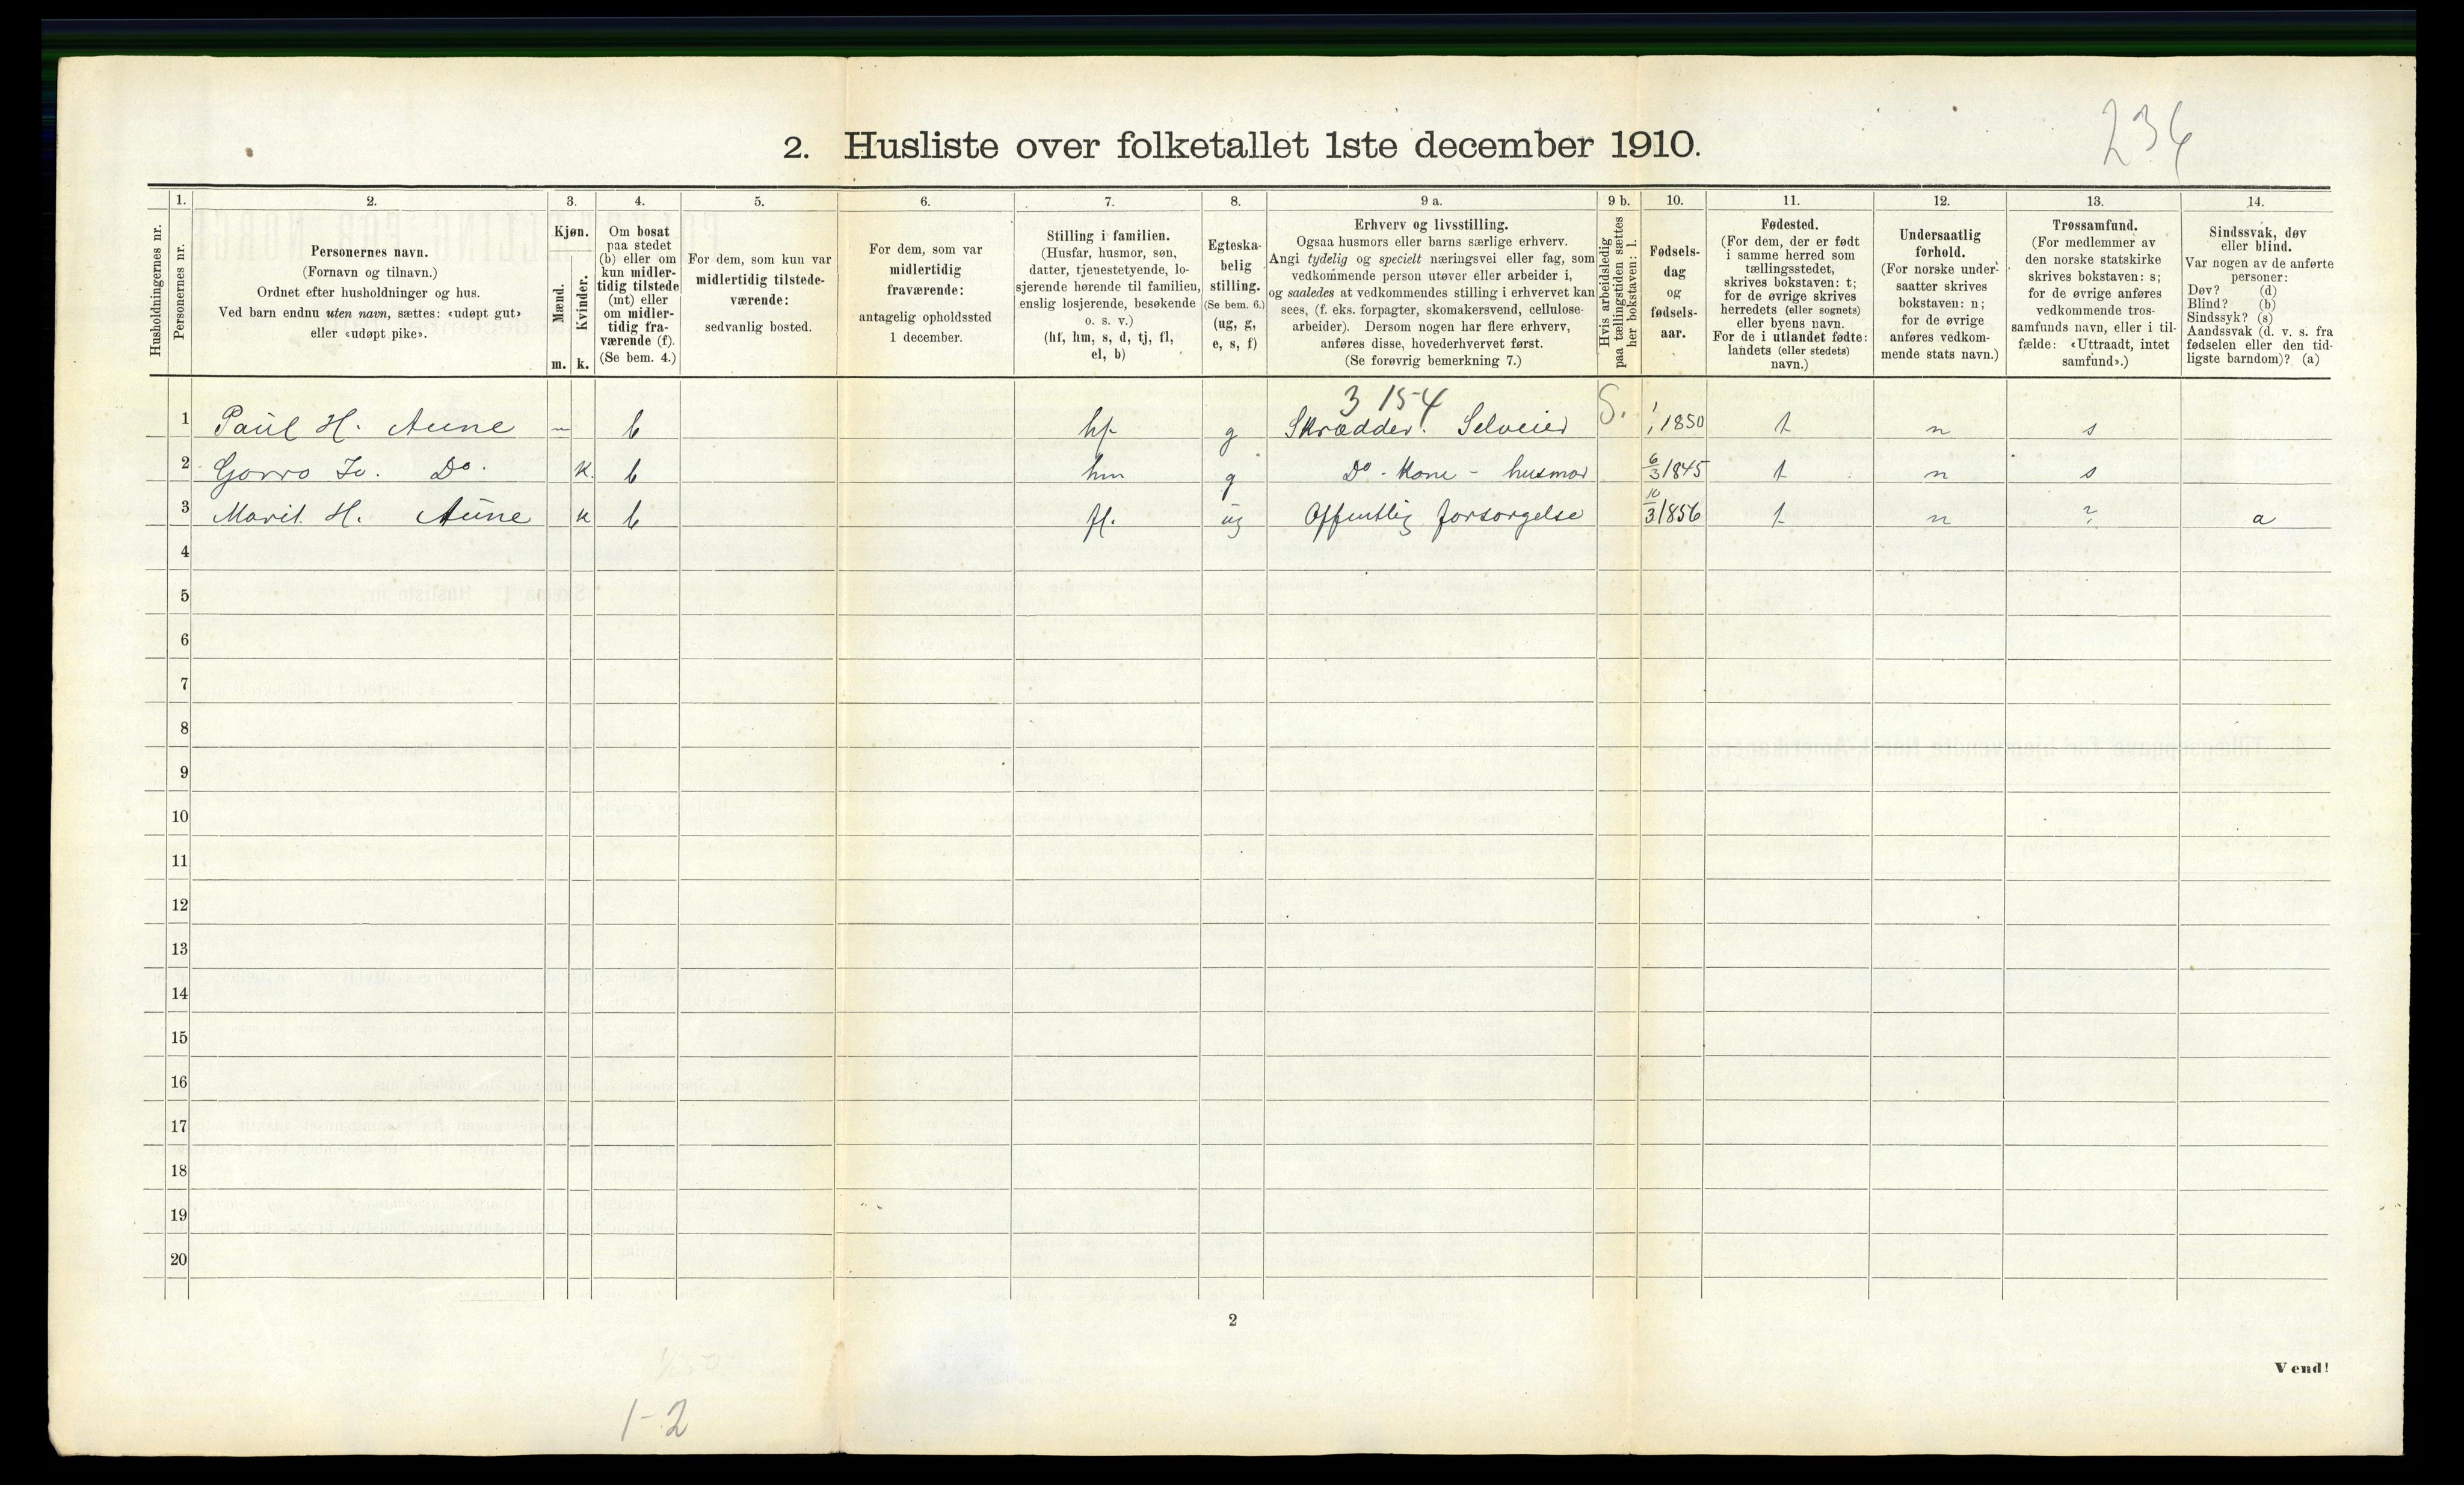 236
2. Husliste over folketallet 1ste december 1910.
Husholdningernes nr.
1.
Personernes nr.
2.
Personernes navn.
(Fornavn og tilnavn.)
Ordnet efter husholdninger og hus.
Ved barn endnu uten navn, sættes: «udøpt gut»
eller «udøpt pike».
3.
Kjøn.
Mænd.
Kvinder.
m. k.
4.
Om bosat
paa stedet
(b) eller om
kun midler-
tidig tilstede
(mt) eller
om midler-
tidig fra-
værende (f).
(Se bem. 4.)
5.
For dem, som kun var
midlertidig tilstede-
værende:
sedvanlig bosted.
6.
For dem, som var
midlertidig
fraværende:
antagelig opholdssted
1 december.
7.
Stilling i familien.
(Husfar, husmor, søn,
datter, tjenestetyende, lo-
sjerende hørende til familien,
enslig losjerende, besøkende
o. s. v.)
(hf, hm, s, d, tj, fl,
el, b)
8.
Egteska-
belig
stilling.
(Se bem. 6.)
(ug, g,
e, s, f)
9 a.
Erhverv og livsstilling.
Ogsaa husmors eller barns særlige erhverv.
Angi tydelig og specielt næringsvei eller fag, som
vedkommende person utøver eller arbeider i,
og saaledes at vedkommendes stilling i erhvervet kan
sees, (f. eks. forpagter, skomakersvend, cellulose-
arbeider). Dersom nogen har flere erhverv,
anføres disse, hovederhvervet først.
(Se forøvrig bemerkning 7.)
9 b.
Hvis arbeidsledig
paa tællingstiden sættes
her bokstaven: l.
10.
Fødsels-
dag
og
fødsels-
aar.
11.
Fødested.
(For dem, der er født
i samme herred som
tællingsstedet,
skrives bokstaven: t;
for de øvrige skrives
herredets (eller sognets)
eller byens navn.
For de i utlandet fødte:
landets (eller stedets)
navn.)
12.
Undersaatlig
forhold.
(For norske under-
saatter skrives
bokstaven: n;
for de øvrige
anføres vedkom-
mende stats navn.)
13.
Trossamfund.
(For medlemmer av
den norske statskirke
skrives bokstaven: s;
for de øvrige anføres
vedkommende tros-
samfunds navn, eller i til-
fælde: «Uttraadt, intet
samfund».)
14.
Sindssvak, døv
eller blind.
Var nogen av de anførte
personer:
Døv? (d)
Blind? (b)
Sindssyk? (s)
Aandssvak (d. v. s. fra
fødselen eller den tid-
ligste barndom)? (a)
3 15-4
1 Paul H. Aune – b hf g Skrædder. Selveier S. 1/1 1850 t n s
2 Gorro Jo. Do. k. b hm g Do - Kone - husmor 6/3 1845 t n s
3 Marit H. Aune k b fl. ug Offentlig forsorgelse 10/3 1856 t n ? a
4
5
6
7
8
9
10
11
12
13
14
15
16
17
18
19
20
2
Vend!
1-2